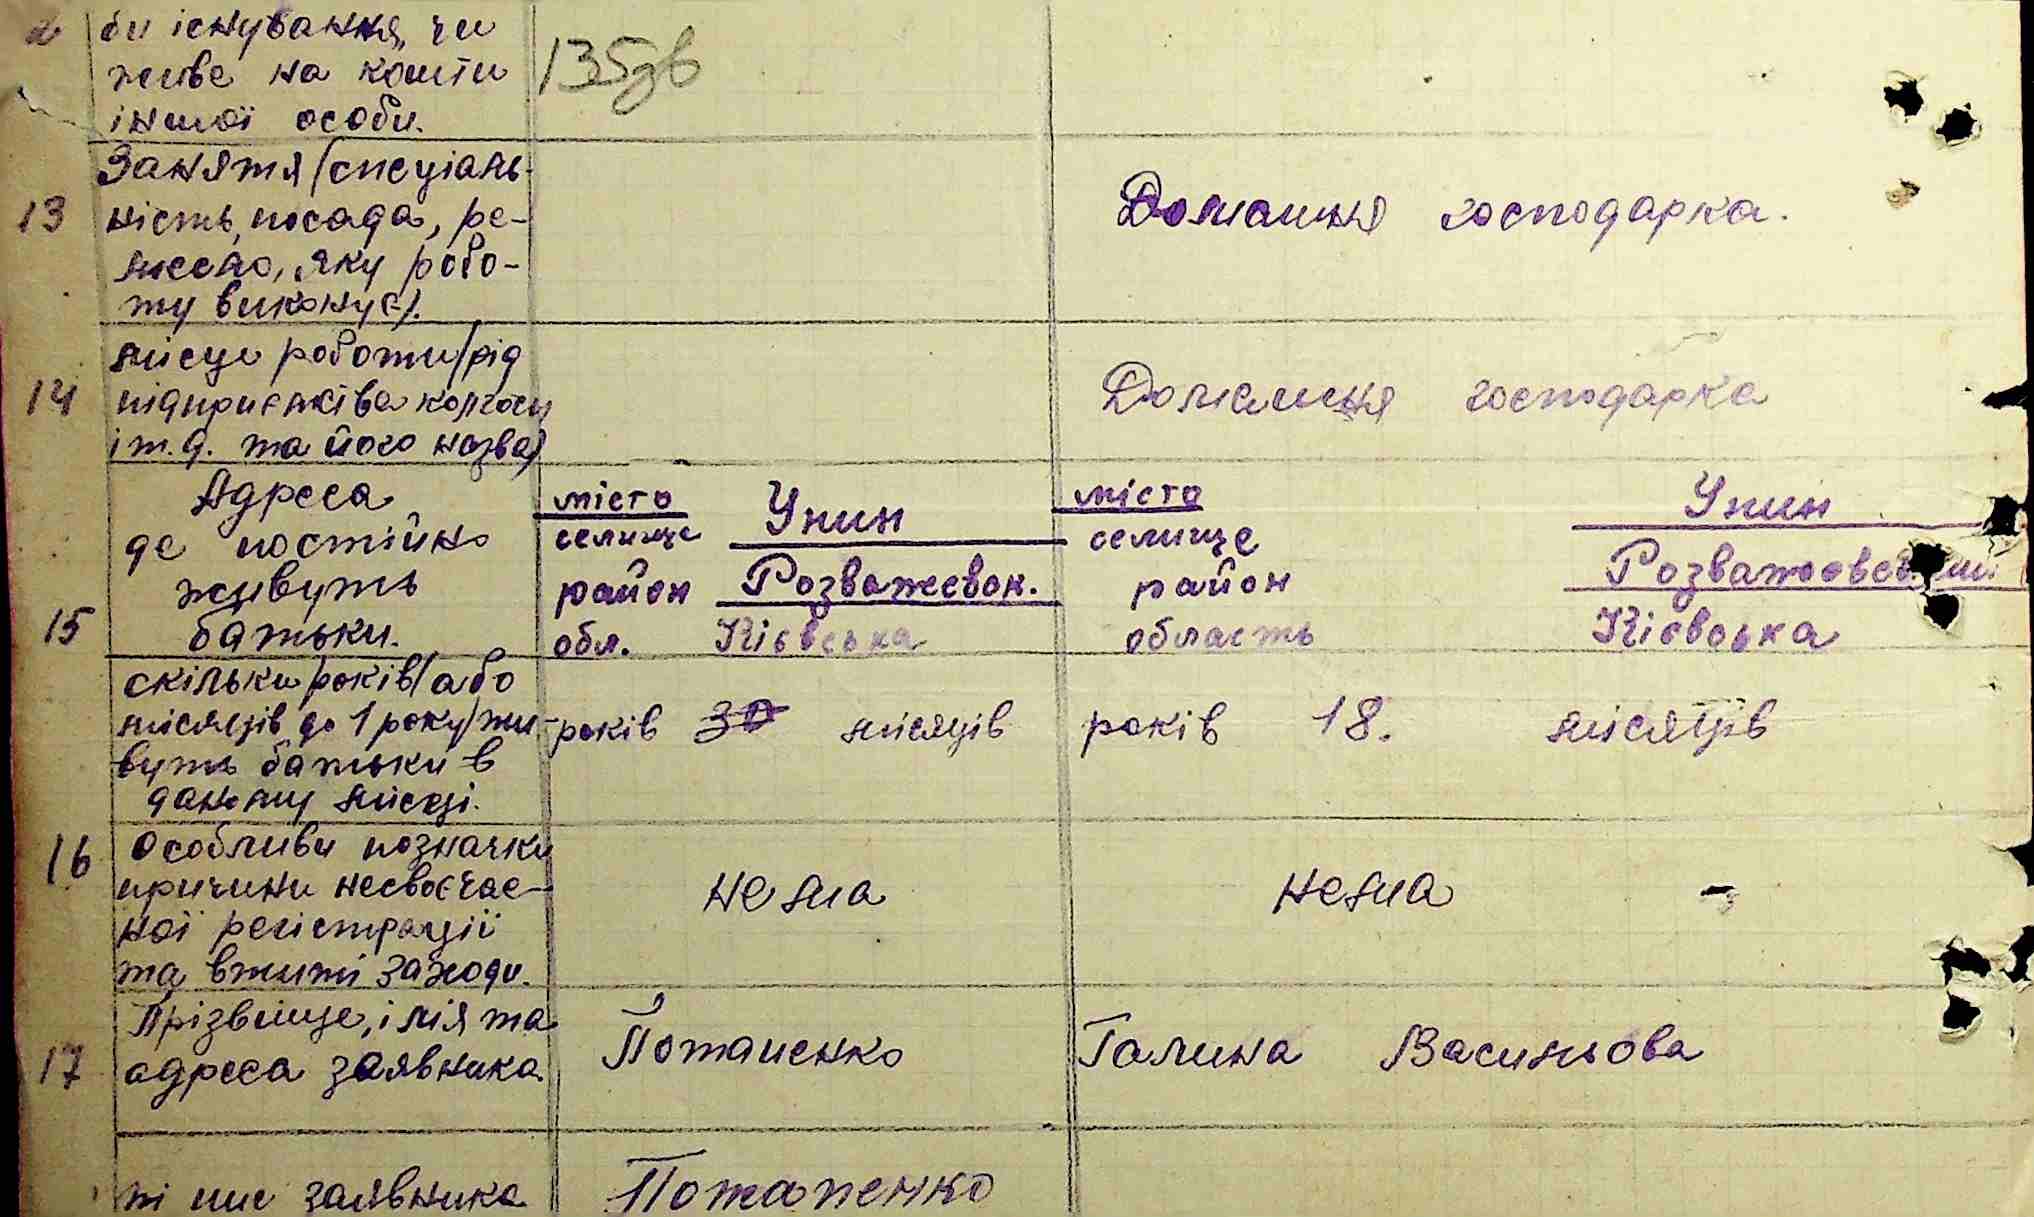 би існування, чи
живе на кошти
іншої особи.
135зв
13
Заняття (спеціаль-
ність, посада, ре-
месло, яку робо-
ту виконує).
Домашня господарка.
14
місце роботи (рід
підприємства колгосп
і т.д. та його назва)
Домашня господарка
15
Адреса
де постійно
живуть
батьки.
місто
селище Унин
район Розважевск.
обл. Кієвська
місто Унин
селище
район Розважевський
область Кієвська
скільки років (або
місяців до 1 року) жи-
вуть батьки в
даному місці.
років 30 місяців
років 18. місяців
16
Особливи позначки
причини несвоєчас-
ної регістрації
та вжиті заходи.
нема
нема
17
Прізвище, імія та
адреса заявника
Потапенко Галина Васильова
підпис заявника
Потапенко